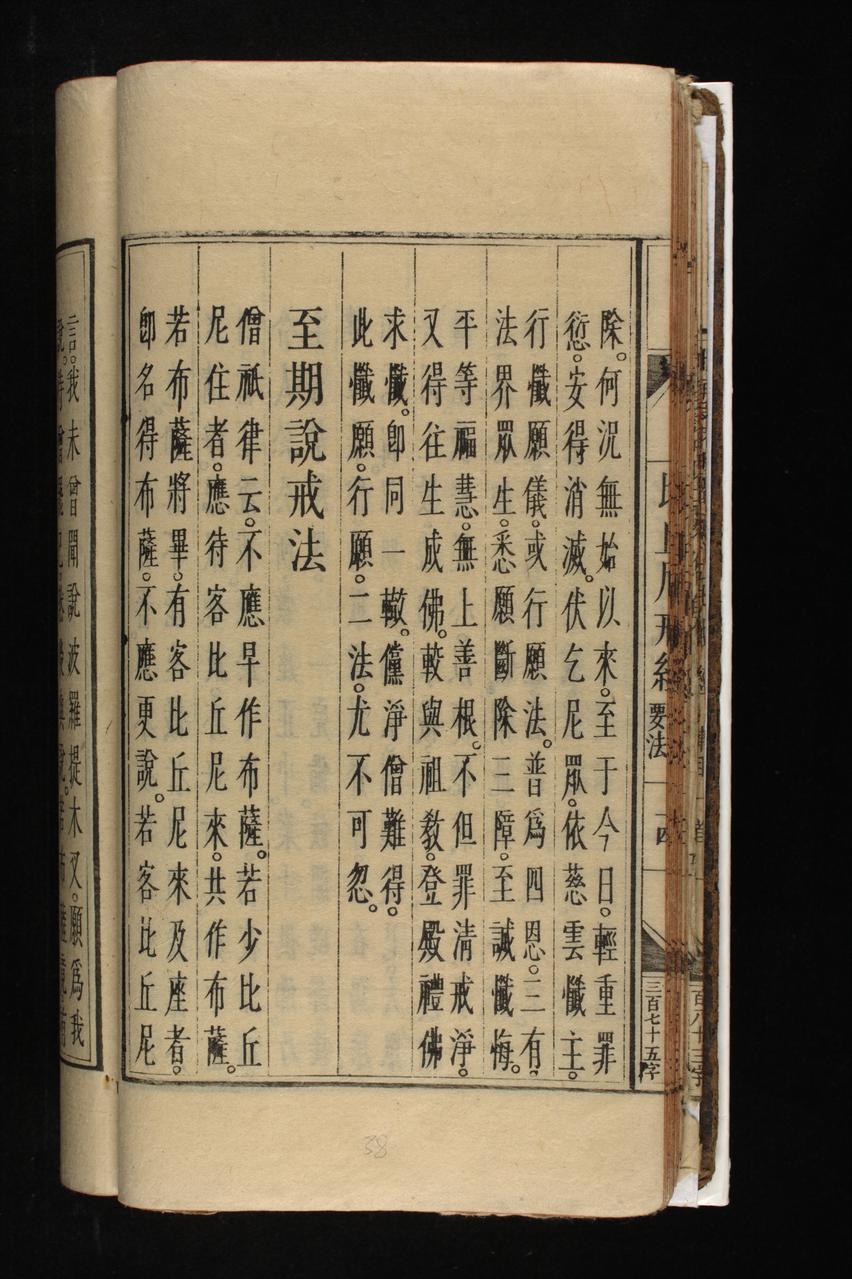 除。何況無始以來。至于今日。輕重罪
愆。安得消滅。伏乞尼眾。依慈雲懺主。
行懺願儀。或行願法。普為四恩。三有。
法界眾生。悉願斷除三障。至誠懺悔。
平等福慧。無上善根。不但罪清戒淨。
又得往生成佛。較與祖教。登殿禮佛
求懺。卽同一轍。儻淨僧難得。
此懺願。行願。二法。尤不可忽。
至期說戒法
僧祇律云。不應早作布薩。若少比丘
尼住者。應待客比丘尼來。共作布薩。
若布薩將畢。有客比丘尼來及座者。
卽名得布薩。不應更說。若客比丘尼
要法
三百七十五字
言。我未曾聞說波羅提木叉。願為我